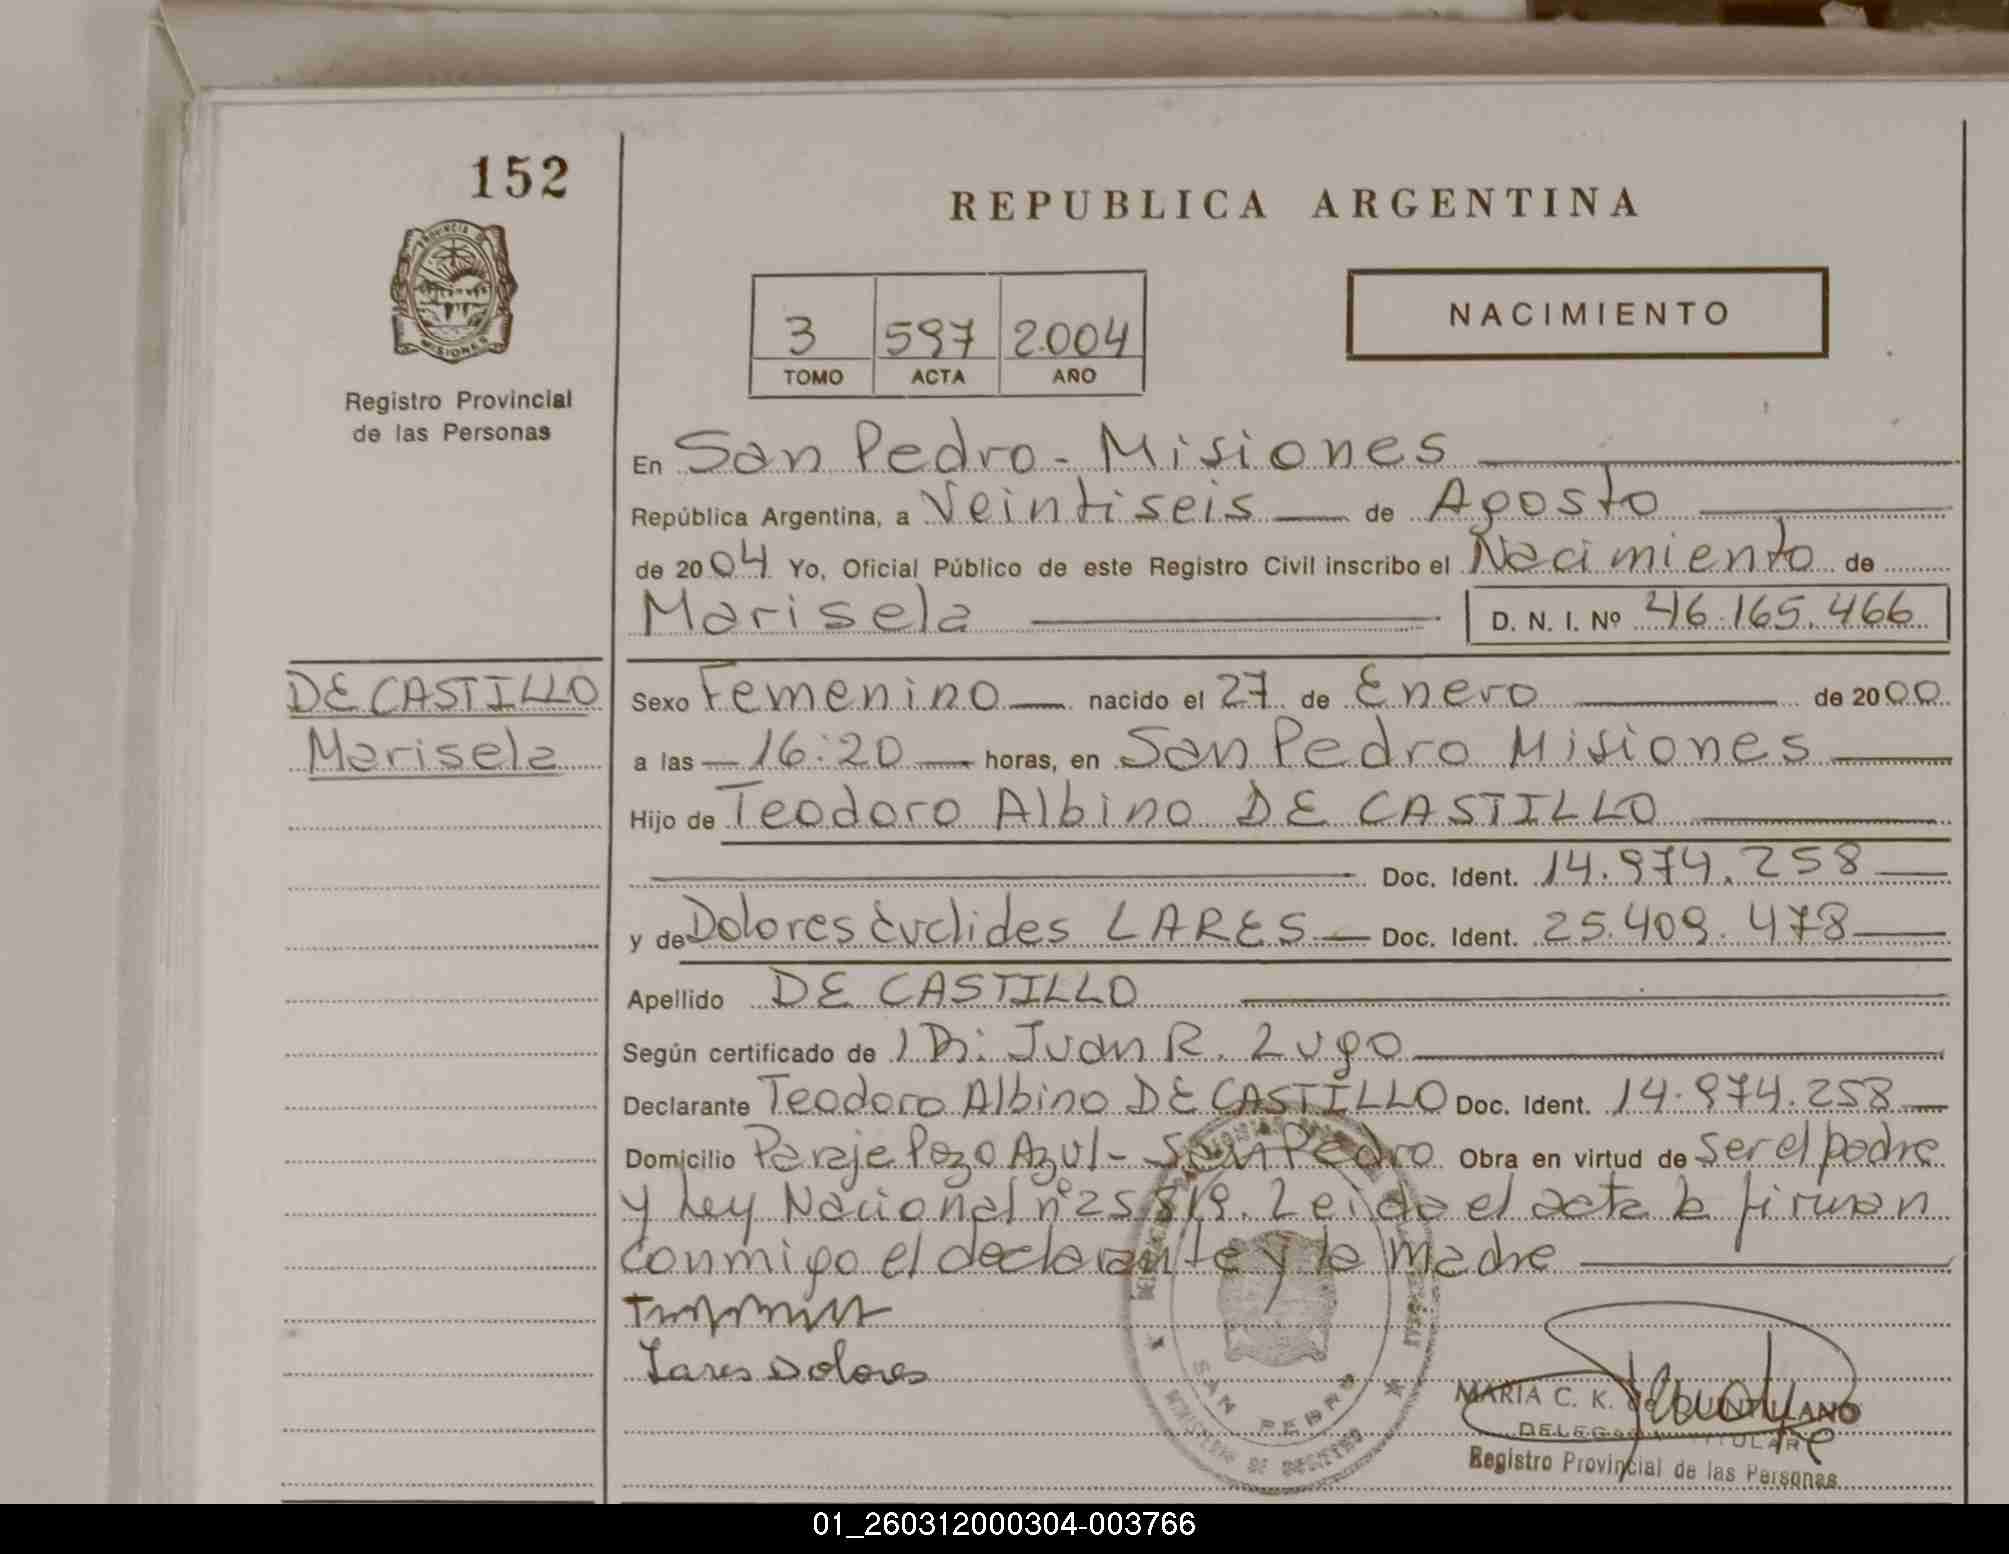 152
REPUBLICA ARGENTINA
PROVINCIA DE
MISIONES
Registro Provincial
de las Personas
3 597 2.004
TOMO ACTA AÑO
NACIMIENTO
En San Pedro - Misiones
República Argentina, a Veintiseis de Agosto
de 2004 Yo, Oficial Público de este Registro Civil inscribo el Nacimiento de
Marisela D. N. I. Nº 46.165.466
DE CASTILLO
Marisela
Sexo Femenino nacido el 27 de Enero de 2000
a las 16:20 horas, en San Pedro Misiones
Hijo de Teodoro Albino DE CASTILLO
Doc. Ident. 14.974.258
y de Dolores Euclides LARES Doc. Ident. 25.409.478
Apellido DE CASTILLO
Según certificado de Juan R. Lugo
Declarante Teodoro Albino DE CASTILLO Doc. Ident. 14.974.258
Domicilio Paraje Pozo Azul - San Pedro Obra en virtud de ser el padre
y Ley Nacional nº 25819. Leida el acta la firman
conmigo el declarante y la madre
Lares Dolores
SAN PEDRO
MARIA C. K. de QUINTILLANO
DELEGADA TITULAR
Registro Provincial de las Personas
01_260312000304-003766